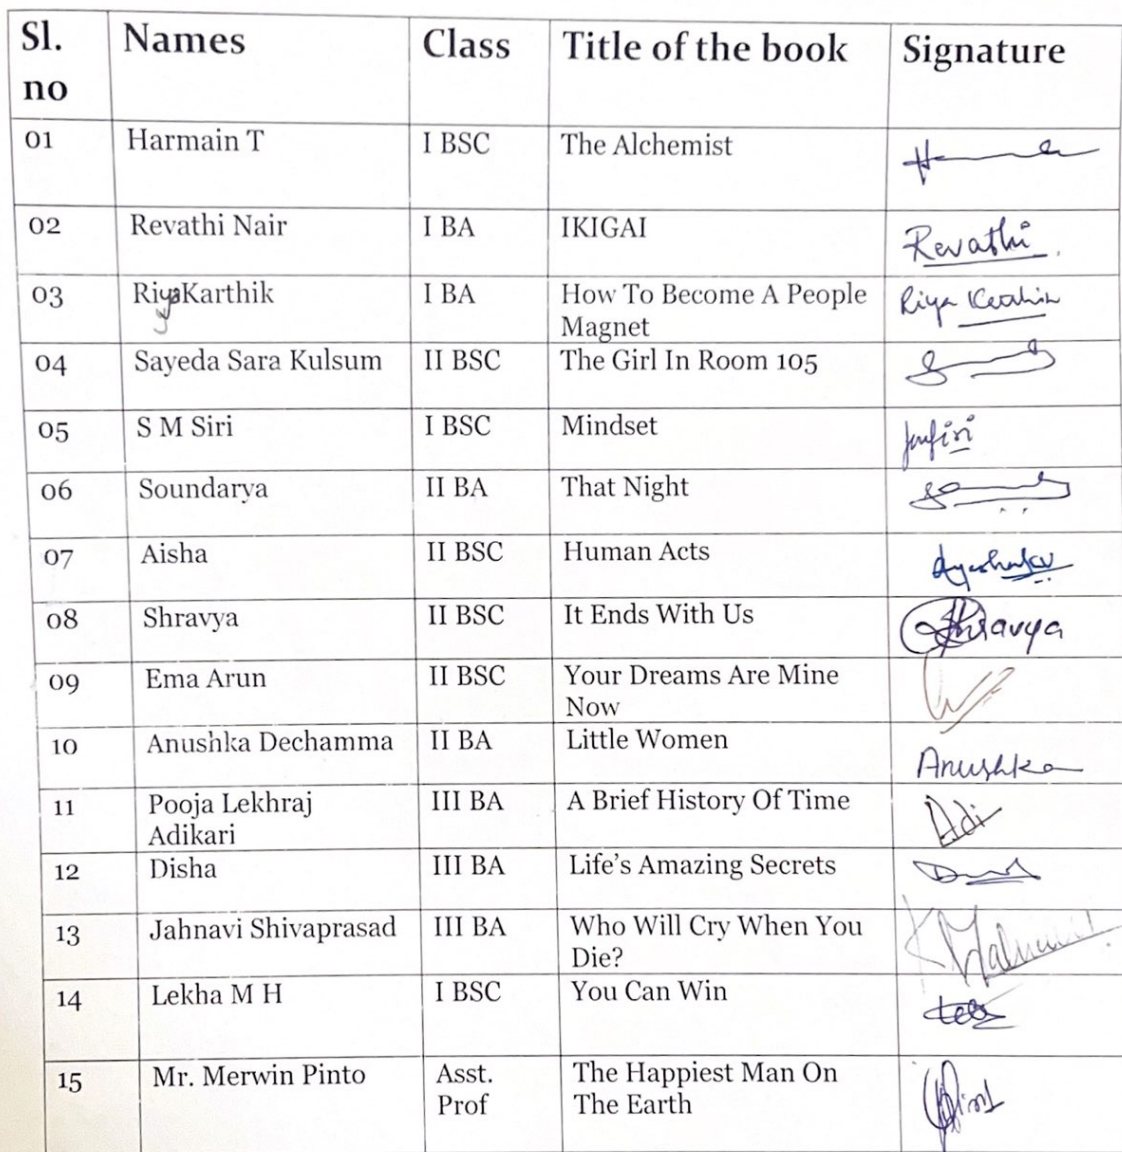 Sl. no Names Class Title of the book Signature
01 Harmain T I BSC The Alchemist
02 Revathi Nair I BA IKIGAI Revathi
03 RiyaKarthik I BA How To Become A People Magnet Riya
04 Sayeda Sara Kulsum II BSC The Girl In Room 105
05 S M Siri I BSC Mindset
06 Soundarya II BA That Night
07 Aisha II BSC Human Acts
08 Shravya II BSC It Ends With Us Shravya
09 Ema Arun II BSC Your Dreams Are Mine Now
10 Anushka Dechamma II BA Little Women Anushka
11 Pooja Lekhraj Adikari III BA A Brief History Of Time Adi
12 Disha III BA Life's Amazing Secrets
13 Jahnavi Shivaprasad III BA Who Will Cry When You Die?
14 Lekha M H I BSC You Can Win
15 Mr. Merwin Pinto Asst. Prof The Happiest Man On The Earth